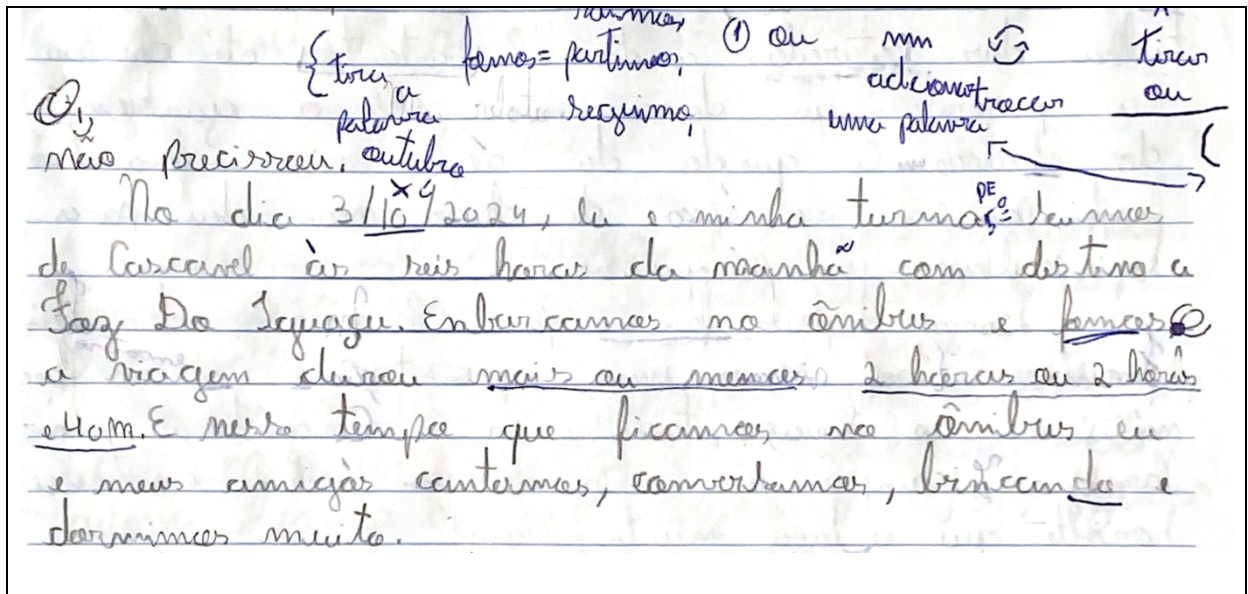 fomos = partimos,
seguimo,
{ tira a palavra outubro
① ou
adicionar uma palavra
trocar
tirar
ou
não precisou.
No dia 3/10/2024, eu e minha turma DE saimos
de Cascavel às seis horas da maanhã com destino a
Foz Do Iguaçu. Enbarcamos no ônibus e fomos
a viagem durou mais ou menos 2 horas ou 2 horas
e 40m. E nesse tempo que ficamos no ônibus eu
e meus amigos cantamos, conversamos, brincando e
dormimos muito.